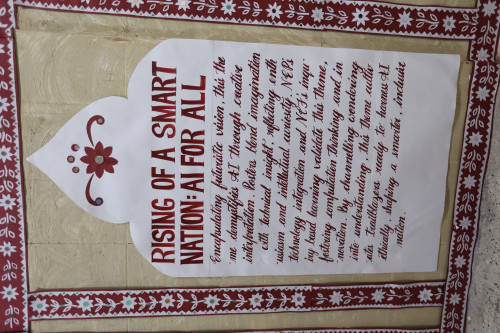 RISING OF A SMART
NATION: AI FOR ALL
Encapsulating futuristic vision, this the
me demystifies AI through creative
interpretation. Posters blend imagination
with technical insight, reflecting with
vision and intellectual curiosity. NEP's
technology integration and NCF's inqu-
iry-based learning validate this theme,
fostering computation thinking and in
novation. By channelling wondering
into understanding, this theme culti
vates trailblazers ready to harness AI
ethically shaping a smarter, inclusive
nation.